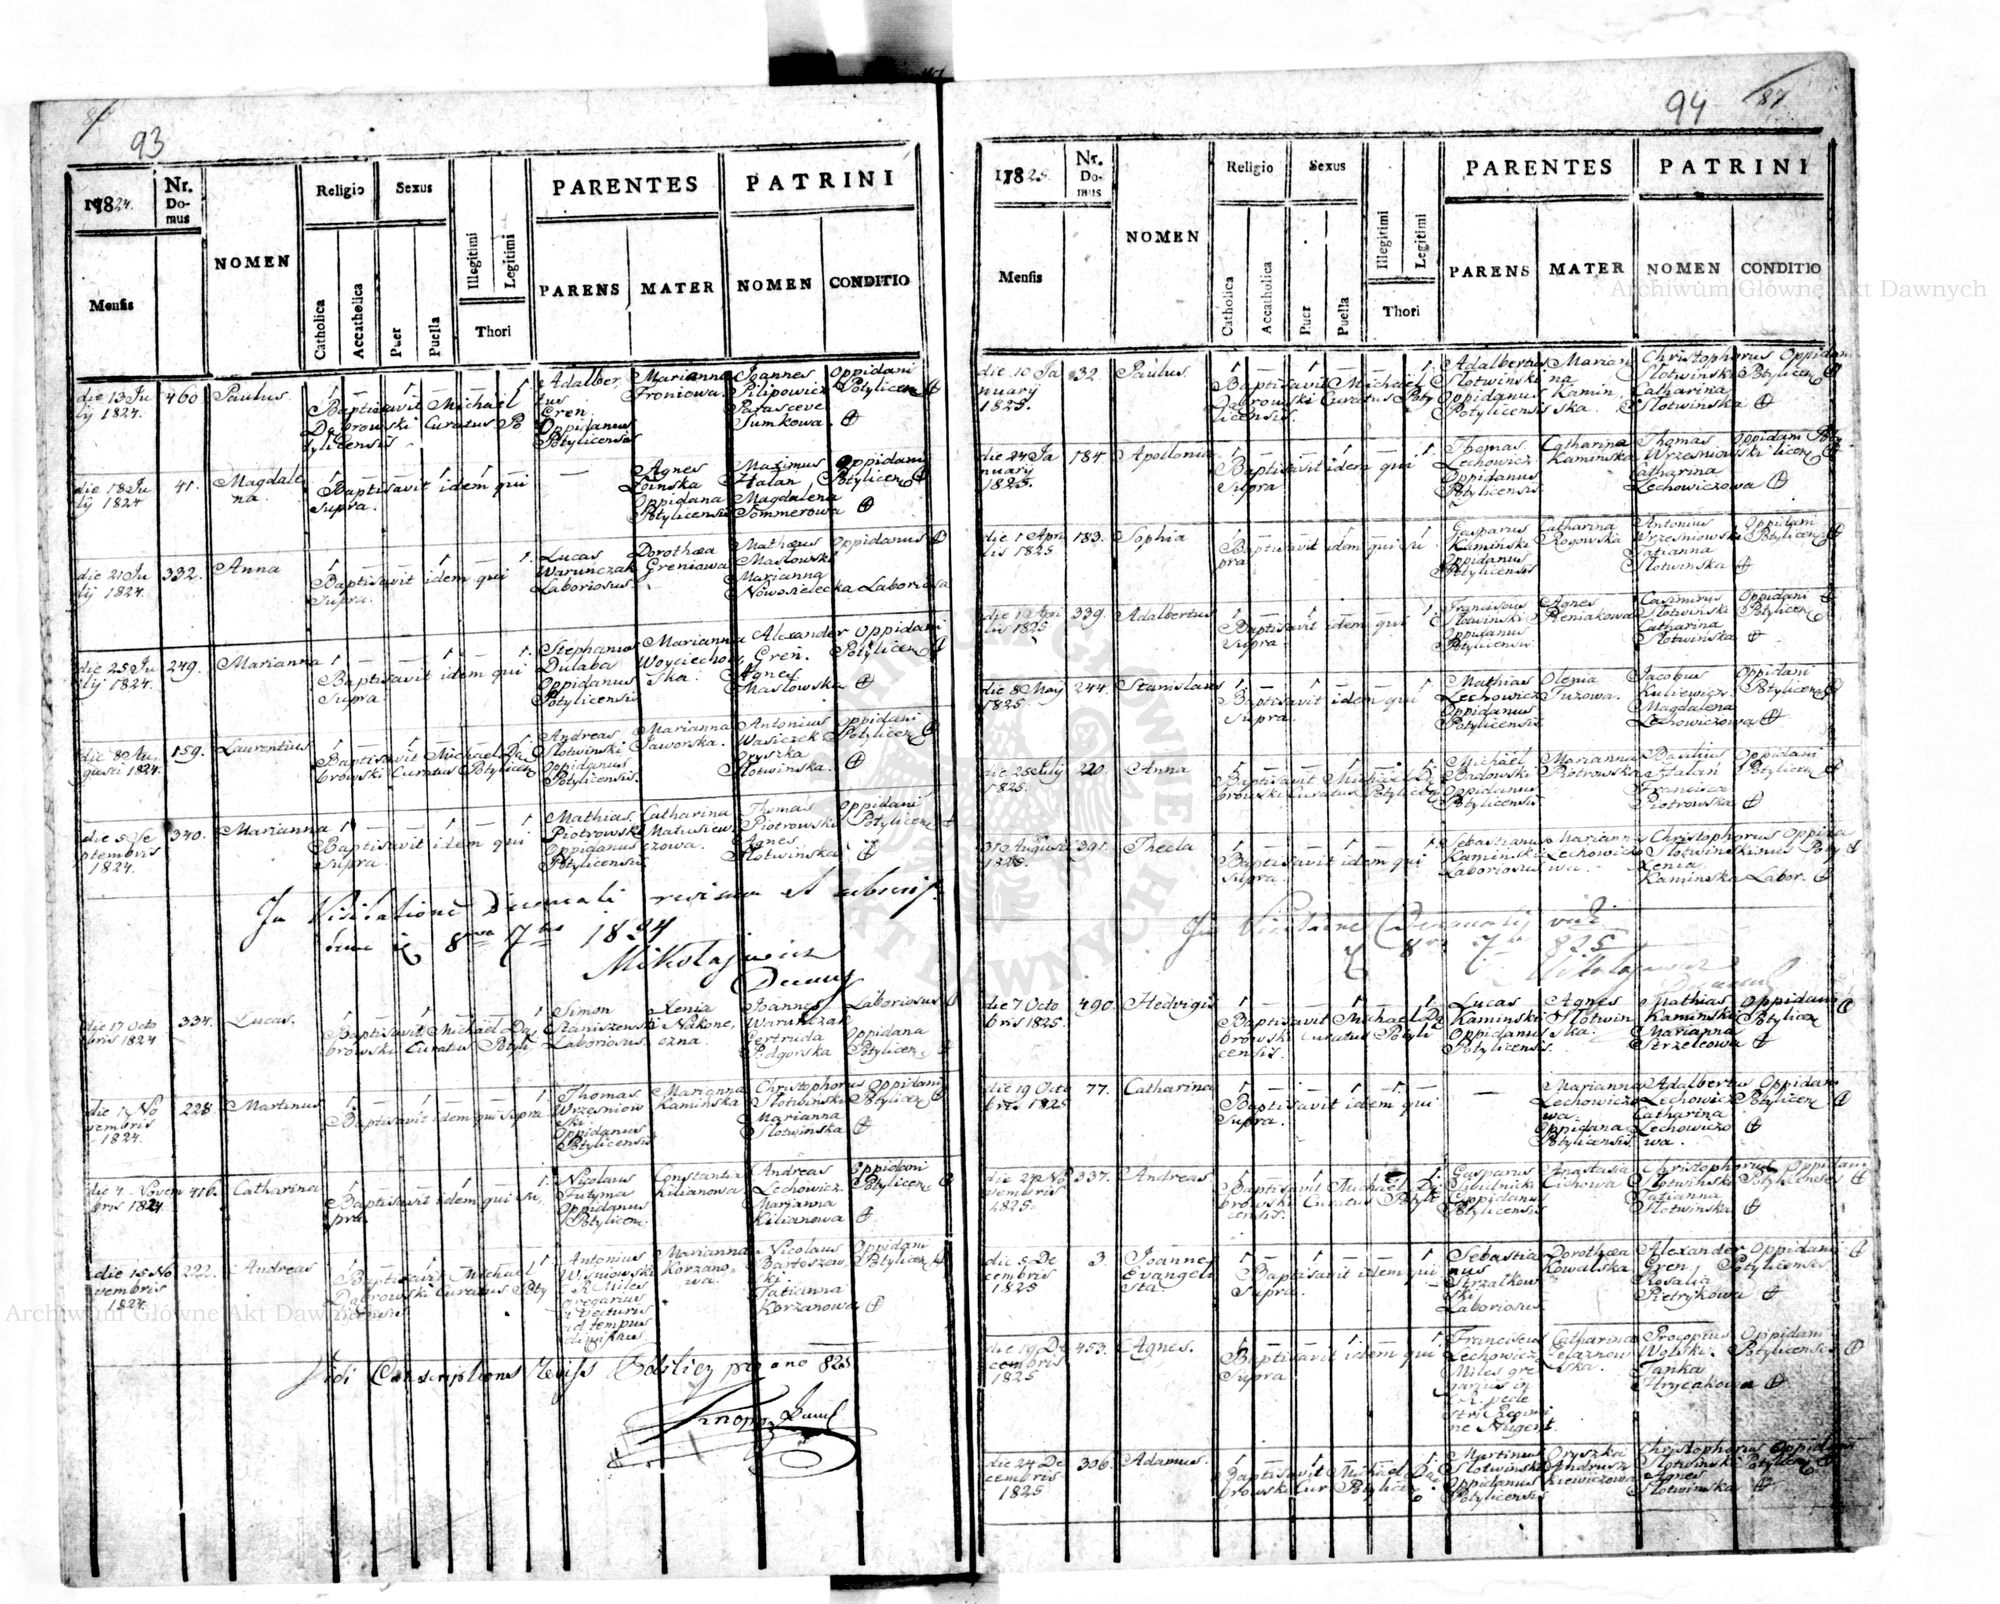 93
1824.
Nr. Domus
NOMEN
Religio
Sexus
Illegitimi
Legitimi
PARENTES
PATRINI
Mensis
Catholica
Accatholica
Puer
Puella
Thori
PARENS
MATER
NOMEN
CONDITIO
die 13 Ju
lij 1824.
460
Paulus.
Baptisavit Michaël
Dąbrowski Curatus Po
tylicensis
Adalber
tus
Gren
Oppidanus
Potylicensis
Marianna
Froniowa.
Joannes
Pilipowicz
Parasceve
Sumkowa.
Oppidani
Potylicen
die 18 Ju
lij 1824
41.
Magdale
na.
Baptisavit idem qui
supra.
Agnes
Łoinska
Oppidana
Potylicensis
Maximus
Halan
Magdalena
Sommerowa
Oppidani
Potylicen
die 21 Ju
lij 1824.
332.
Anna
Baptisavit idem qui
supra.
Lucas
Waruńczak
Laboriosus.
Dorothea
Greniowa
Mathæus
Masłowski
Marianna
Nowosielecka
Oppidanus
Laboriosa
die 25 Ju
lij 1824.
249.
Marianna
Baptisavit idem qui
supra
Stephanus
Dulaba
Oppidanus
Potylicensis
Marianna
Woyciechow
ska.
Alexander
Gren.
Agnes
Masłowska
Oppidani
Potylicen
die 8 Au
gusti 1824.
159.
Laurentius
Baptisavit Michael Dą
browski Curatus Potylicen
Andreas
Słotwinski
Oppidanus
Potylicensis.
Marianna
Jaworska.
Antonius
Wasiczek
Oryszka
Słotwińska.
Oppidani
Potylicen
die 5 Se
ptembris
1824.
340.
Marianna
Baptisavit idem qui
supra.
Mathias
Piotrowski
Oppidanus
Potylicensis
Catharina
Matusiew
czowa.
Thomas
Piotrowski
Agnes
Słotwińska
Oppidani
Potylicen
In Visitatione Decanali
8va 7bris 1824
Mikołajewicz
die 17 Octo
bris 1824
334.
Lucas.
Baptisavit Michaël Dą
browski Curatus Potyli
Simon
Staniszewski
Laboriosus.
Xenia
Nakone,
czna.
Joannes
Waruńczak
Gertruda
Podgorska
Laboriosus
Oppidana
Potylicen
die 1 No
vembris
1824.
228.
Martinus
Baptisavit idem qui supra
Thomas
Wrzesniow
ski.
Oppidanus
Potylicensis
Marianna
Kamińska
Christophorus
Słotwinski
Marianna
Słotwinska
Oppidani
Potylicen
die 4 Novem
bris 1824.
416.
Catharina
Baptisavit idem qui su,
pra.
Nicolaus
Futyma
Oppidanus
Potylicen.
Constantia
Kilianowa
Andreas
Lechowicz.
Marianna
Kilianowa
Oppidani
Potylicen
die 15 No
vembris
1824.
222.
Andreas
Baptisavit Michaël
Dąbrowski Curatus Poty
licensis
Antonius
Wisniowski
Miles
gregarius
ad tempus
Marianna
Korzano,
wa.
Nicolaus
Bartoszew
ski.
Tatianna
Korzanowa
Oppidani
Potylicen
Vidi Conscriptions
94
87
1825.
Nr. Domus
NOMEN
Religio
Sexus
Illegitimi
Legitimi
PARENTES
PATRINI
Mensis
Catholica
Accatholica
Puer
Puella
Thori
PARENS
MATER
NOMEN
CONDITIO
die 10 Ja
nuarij
1825.
32.
Paulus.
Baptisavit Michaël
Dąbrowski Curatus Poty
licensis.
Adalbertus
Słotwinski
Oppidanus
Potylicensis
Marian
na
Kamin,
ska.
Christophorus
Słotwinski
Catharina
Słotwinska
Oppidani
Potylicen
die 24 Ja
nuarij
1825.
184.
Apollonia
Baptisavit idem qui
supra
Thomas
Lechowicz
Oppidanus
Potylicensis.
Catharina
Kamińska
Thomas
Wrzesniowski
Catharina
Lechowiczowa
Oppidani Poty
licen
die 1 Apri
lis 1825
183.
Sophia
Baptisavit idem qui su
pra
Gasparus
Kamiński
Oppidanus
Potylicensis
Catharina
Rogowska
Antonius
Wrzesniowski
Tatianna
Słotwinska
Oppidani
Potylicen
339.
Adalbertus
Baptisavit idem qui
supra.
Franciscus
Słotwinski
Oppidanus
Potylicensis
Agnes
Pieniakowa
Casimirus
Słotwinski
Catharina
Słotwinska
Oppidani
Potylicen
die 8 May
1825
244.
Stanislaus
Baptisavit idem qui
supra.
Mathias
Lechowicz
Oppidanus
Potylicensis
Olenia
Tuzowa.
Jacobus
Kuliewicz
Magdalena
Lechowiczowa
Oppidani
Potylicen
die 25 July
1825.
220.
Anna
Baptisavit Michaël Dą
browski Curatus Potylicen
Michaël
Badowski
Oppidanus
Potylicensis
Marianna
Piotrowska
Basilius
Halan
Francisca
Piotrowska
Oppidani
Potylicen
31 Augusti
1825.
391.
Thecla
Baptisavit idem qui
supra.
Sebastianus
Kamiński
Laboriosus
Marianna
Lechowiczo
wa.
Christophorus
Słotwinski
Xenia
Kaminska
Oppida
nus Poty
Labor.
In Visitatione Decanali vidi
8va 7bris 825
die 7 Octo
bris 1825.
490.
Hedvigis
Baptisavit Michaël Dą
browski Curatus Potyli
censis.
Lucas
Kaminski
Oppidanus
Potylicensis.
Agnes
Słotwin
ska.
Mathias
Kaminski
Marianna
Strzelcowa
Oppidani
Potylicen
die 19 Octo
bris 1825
77.
Catharina
Baptisavit idem qui
supra.
Marianna
Lechowiczo
wa.
Oppidana
Potylicensis
Adalbertus
Lechowicz
Catharina
Lechowiczo
wa.
Oppidani
Potylicen
vembris
1825.
337.
Andreas
Baptisavit Michael Dą
browski Curatus Potyli
censis.
Gasparus
Oppidanus
Potylicensis
Anastasia
Cichowa
Christophorus
Słotwinski
Tatianna
Słotwinska
Oppidani
Potylicenses
die 5 De
cembris
1825
3.
Joannes
Evangeli
sta.
Baptisavit idem qui
supra.
Sebastia
nus
Strzałkow
ski
Laboriosus
Dorothæa
Kowalska
Alexander
Gren,
Rosalia
Pietrykowa
Oppidani
Potylicensis
die 19 De
cembris
1825
453.
Agnes.
Baptisavit idem qui
supra
Franciscus
Lechowicz
Miles gre
garius
stri Regimi
ne Nugent.
Catharina
Zelaznow
ska.
Procopius
Wolski.
Tanka
Hrycakowa
Oppidani
Potylicenses
die 24 De
cembris
1825
306.
Adamus.
Baptisavit Michael Dą
browski Cur Potylicen
Martinus
Słotwinski
Oppidanus
Potylicensis
Oryszka
Andrusz
kiewiczowa
Christophorus
Słotwinski
Agnes
Słotwinska
Oppidani
Potylicen
Archiwum Główne Akt Dawnych
Archiwum Główne Akt Dawnych